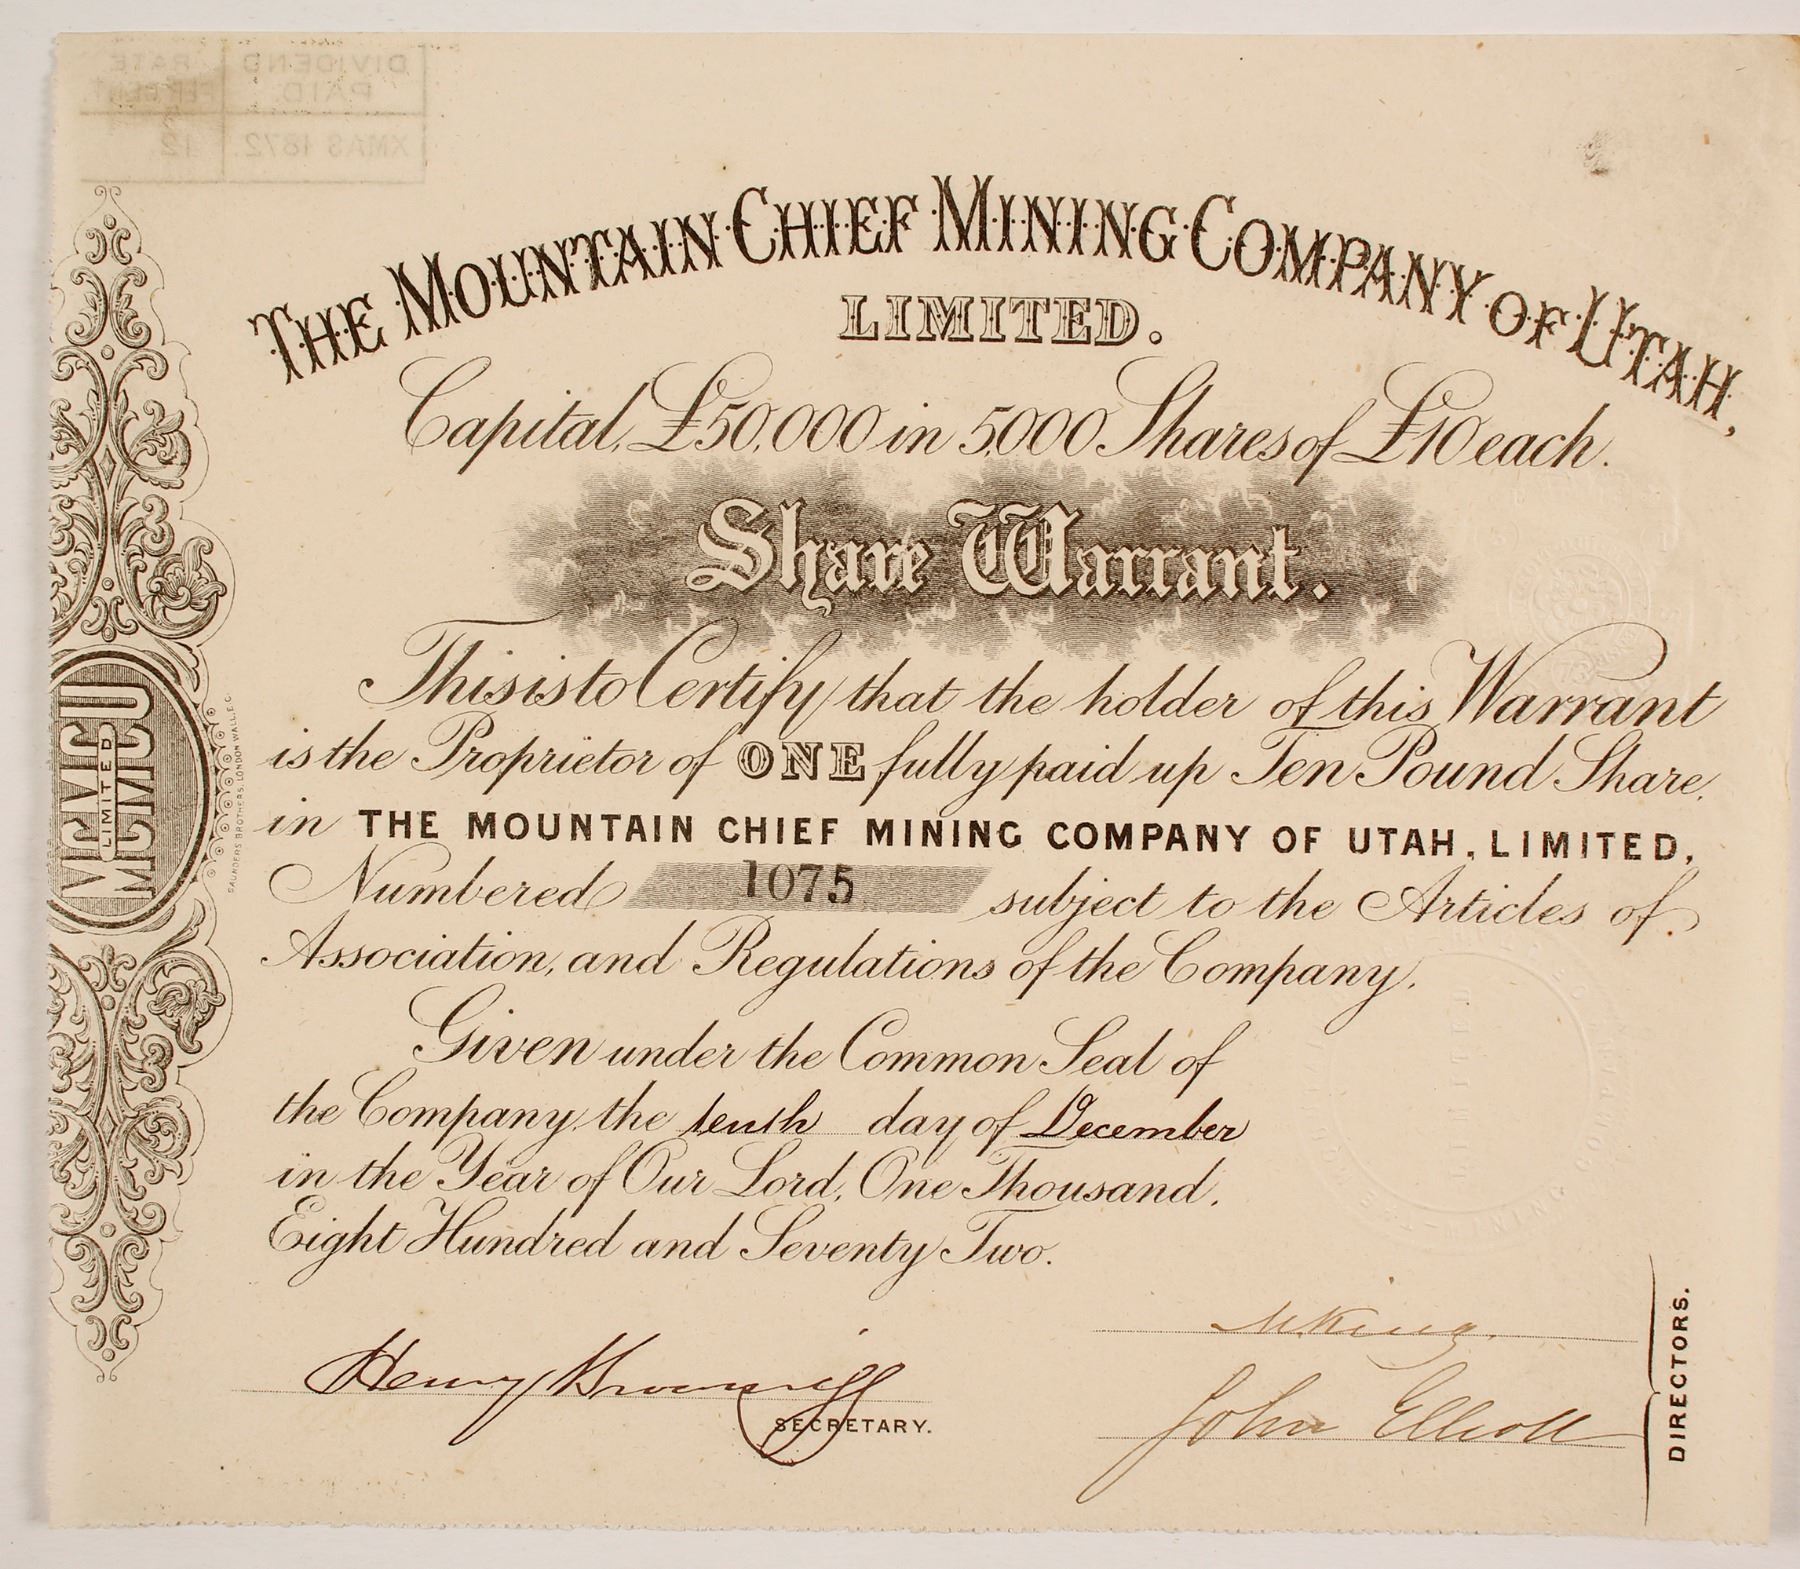 DIVIDEND PAID. RATE PER CENT.
XMAS 1872. 12.
THE MOUNTAIN CHIEF MINING COMPANY OF UTAH,
LIMITED.
Capital, £50,000 in 5,000 Shares of £10 each.
Share Warrant.
This is to Certify that the holder of this Warrant
is the Proprietor of ONE fully paid up Ten Pound Share,
in THE MOUNTAIN CHIEF MINING COMPANY OF UTAH, LIMITED,
Numbered 1075 subject to the Articles of
Association, and Regulations of the Company.
Given under the Common Seal of
the Company, the tenth day of December
in the Year of Our Lord, One Thousand,
Eight Hundred and Seventy Two.
Henry
SECRETARY.
King.
John Elliott
DIRECTORS.
MCMCU
LIMITED
SAUNDERS BROTHERS, LONDON WALL, E.C.